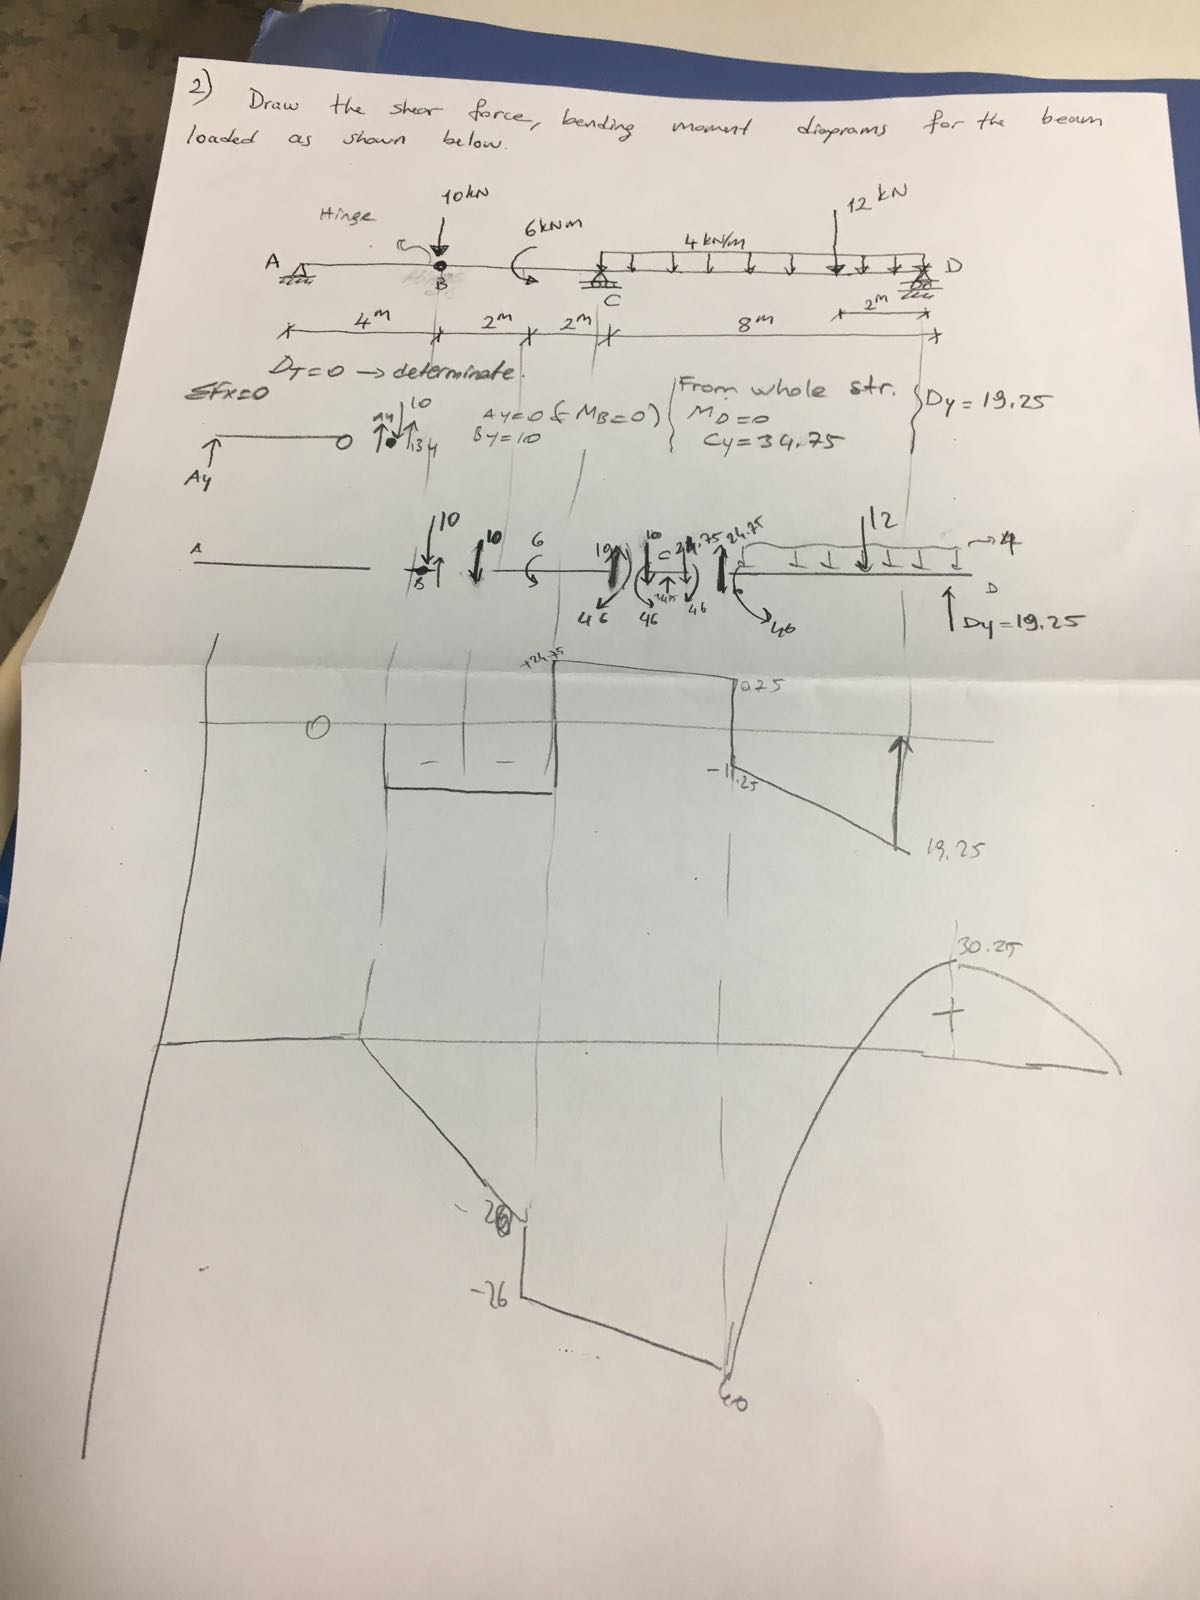 2) Draw the shear force, bending moment diagrams for the beam
loaded as shown below.
10kN
12 kN
Hinge
6kNm
4 kN/m
A
B
C
D
2m
4m
2m
2m
8m
DT=0 → determinate.
ΣFx=0
Ay
10
Ay
By
Ay=0 (MB=0)
By=10
From whole str.
MD=0
Cy=34.75
Dy=19.25
A
10
B
10
6
10
46
10
C
24.75
34.75
46
46
24.75
12
→4
46
D
Dy=19.25
+24.75
0.75
0
-
-
-11.25
19.25
30.25
+
-26